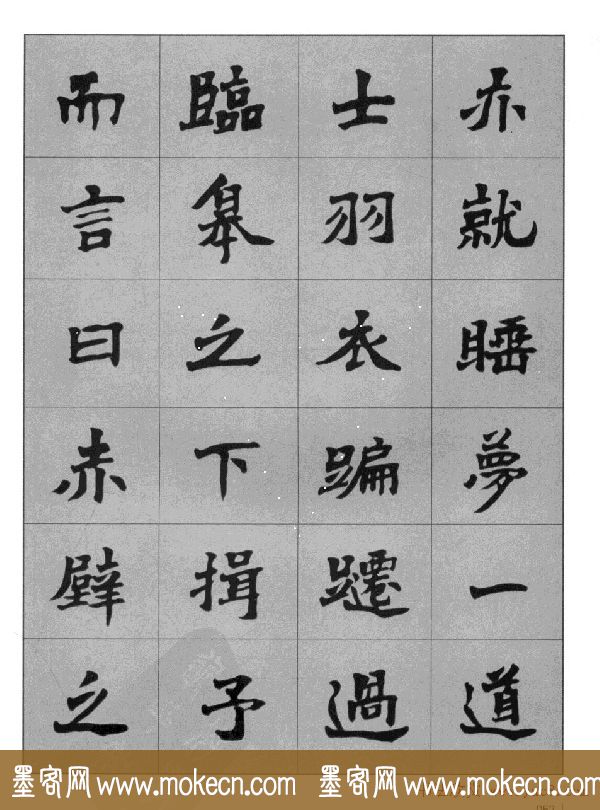 亦就睡夢一道
士羽衣蹁躚過
臨皋之下揖予
而言曰赤壁之
墨客网 www.mokecn.com 墨客网 www.mokecn.com